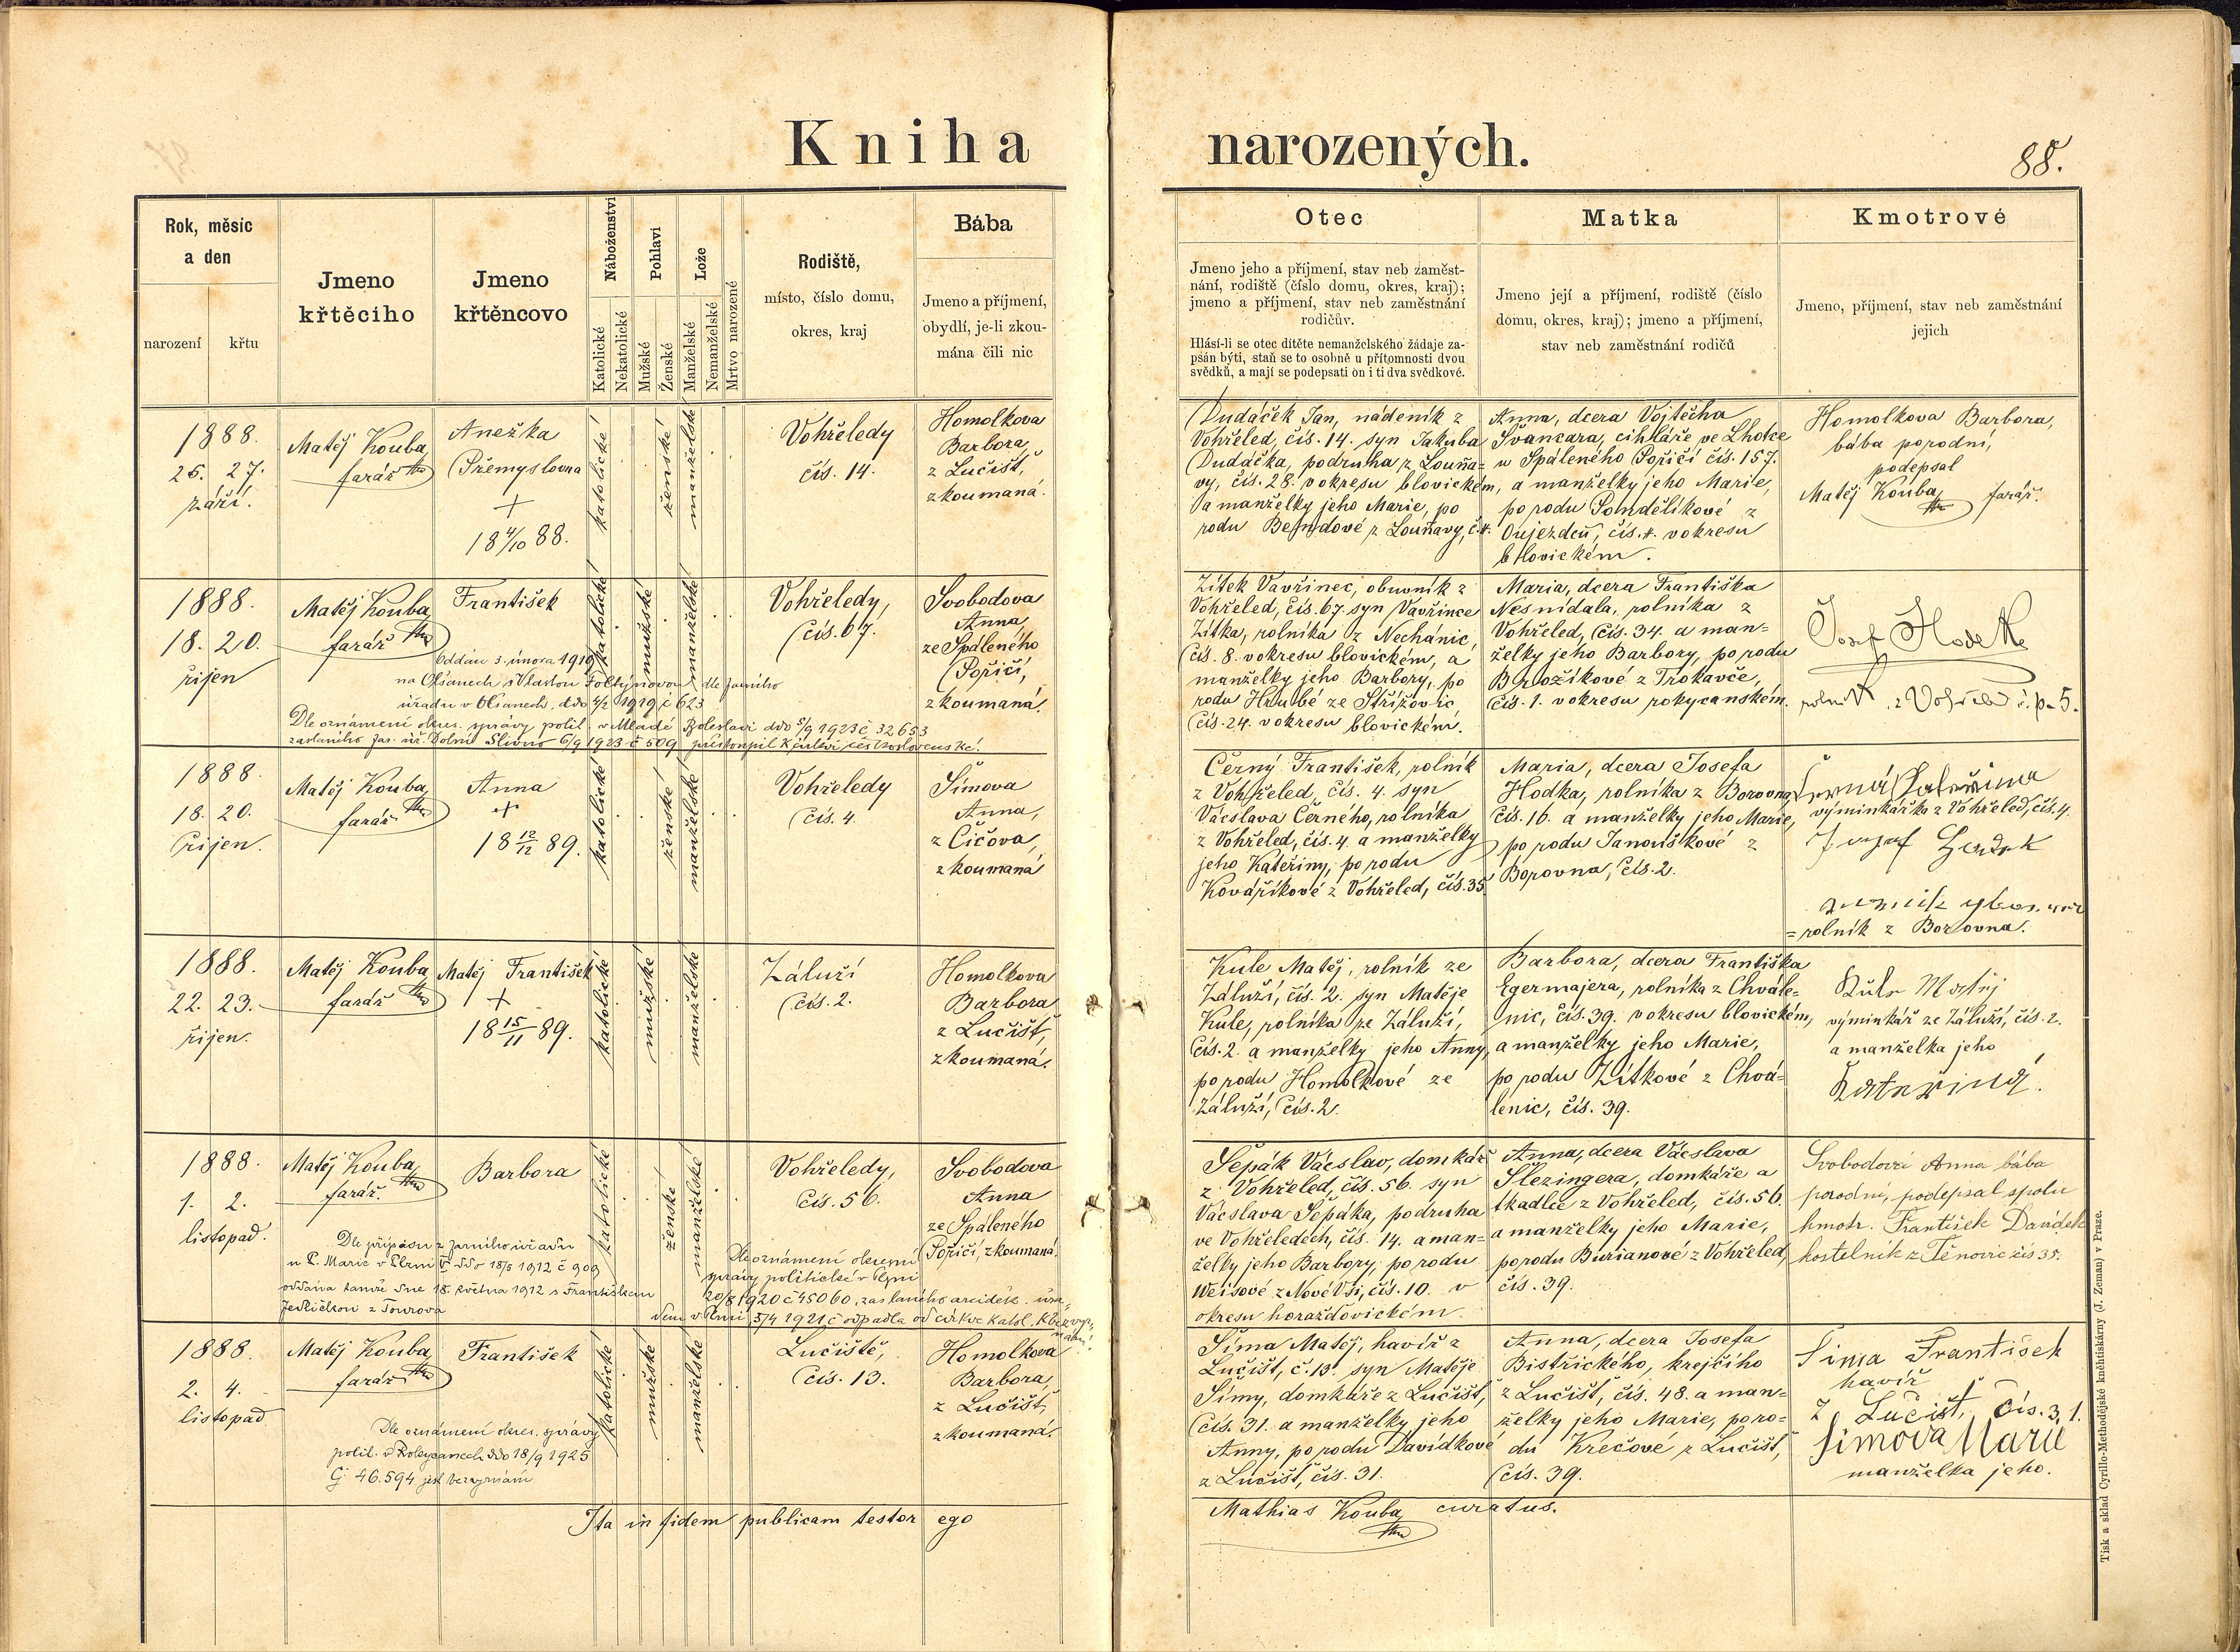 Kniha narozených.
88.
Rok, měsíc
a den
narození
křtu
Jmeno
křtěcího
Jmeno
křtěncovo
Náboženství
Katolické
Nekatolické
Pohlaví
Mužské
Ženské
Lože
Manželské
Nemanželské
Mrtvo narozené
Rodiště,
místo, číslo domu,
okres, kraj
Bába
Jmeno a příjmení,
obydlí, je-li zkou-
mána čili nic
Otec
Jmeno jeho a příjmení, stav neb zaměst-
nání, rodiště (číslo domu, okres, kraj);
jmeno a příjmení, stav neb zaměstnání
rodičův.
Hlásí-li se otec dítěte nemanželského žádaje za-
psán býti, staň se to osobně u přítomnosti dvou
svědků, a mají se podepsati on i ti dva svědkové.
Matka
Jmeno její a příjmení, rodiště (číslo
domu, okres, kraj); jmeno a příjmení,
stav neb zaměstnání rodičů
Kmotrové
Jmeno, příjmení, stav neb zaměstnání
jejich
1888.
25. 27.
září.
Matěj Kouba
farář
Anežka
Přemyslovna
+
18 4/10 88.
katolické
ženské
manželské
Vohřeledy
čís. 14.
Homolkova
Barbora,
z Lučišť,
zkoumaná.
Dudáček Jan, nádeník z
Vohřeled, čís. 14. syn Jakuba
Dudáčka, podruha z Louňa=
vy, čís. 28. v okresu blovickém,
a manželky jeho Marie, po
rodu Bendové z Louňavy, č. 4.
Anna, dcera Vojtěcha
Švancara, cihláře ve Lhotce
u Spáleného Poříčí čís. 157.
a manželky jeho Marie,
po rodu Pondělíkové z
Oujezdců, čís. 4. v okresu
blovickém.
Homolkova Barbora,
bába porodní,
podepsal
Matěj Kouba farář.
1888.
18. 20.
říjen
Matěj Kouba
farář
František
Oddán 3. února 1919
na Olšanech s Vlastou Foltýnovou dle farního
úřadu v Olšanech, ddo 4/2 1919 č 623
Dle oznámení okres. správy polit. v Mladé Boleslavi ddo 5/9 1923 č 32653
zaslaného far. úř. Dolní Slivno 6/9 1923 č 509 přistoupil k církvi československé.
katolické
mužské
manželské
Vohřeledy,
čís. 67.
Svobodova
Anna,
ze Spáleného
Poříčí,
zkoumaná.
Zítek Vavřinec, obuvník z
Vohřeled, čís. 67. syn Vavřince
Zítka, rolníka z Nechánic,
čís. 8. v okresu blovickém, a
manželky jeho Barbory, po
rodu Hrubé ze Střížovic,
čís. 24. v okresu blovickém.
Maria, dcera Františka
Nesnídala, rolníka z
Vohřeled, čís. 34. a man=
želky jeho Barbory, po rodu
Brožíkové z Trokavče,
čís. 1. v okresu rokycanském.
Josef
rolník z Vohřeled č. p. 5.
1888.
18. 20.
říjen.
Matěj Kouba
farář
Anna
+
18 12/12 89.
katolické
ženské
manželské
Vohřeledy
čís. 4.
Šímova
Anna,
z Číčova,
zkoumaná
Černý František, rolník
z Vohřeled, čís. 4. syn
Václava Černého, rolníka
z Vohřeled, čís. 4. a manželky
jeho Kateřiny, po rodu
Kovaříkové z Vohřeled, čís. 35.
Maria, dcera Josefa
Hodka, rolníka z Borovna,
čís. 16. a manželky jeho Marie,
po rodu Janouškové z
Borovna, čís. 2.
Černá Kateřina
výminkářka z Vohřeled, čís. 4.
= rolník z Borovna.
1888.
22. 23.
říjen.
Matěj Kouba
farář
Matěj František
+
18 15/11 89.
katolické
mužské
manželské
Záluží
čís. 2.
Homolkova
Barbora
z Lučišť,
zkoumaná.
Kule Matěj, rolník ze
Záluží, čís. 2. syn Matěje
Kule, rolníka ze Záluží,
čís. 2. a manželky jeho Anny,
po rodu Homolkové ze
Záluží, čís. 2.
Barbora, dcera Františka
Egermajera, rolníka z Chvále=
nic, čís. 39. v okresu blovickém,
a manželky jeho Marie,
po rodu Zítkové z Chvá=
lenic, čís. 39.
Kule Matěj
výminkář ze Záluží, čís. 2.
a manželka jeho
Kateřina.
1888.
1. 2.
listopad.
Matěj Kouba
farář.
Barbora
Dle přípisu z farního úřadu
u P. Marie v Plzni ddo 18/5 1912 č 909
oddána tamže dne 18. května 1912 s Františkem
Jedličkou z Touřova
katolické
ženské
manželské
Vohřeledy,
čís. 56.
Svobodova
Anna
ze Spáleného
Poříčí, zkoumaná.
Dle oznámení okresní
správy politické v Plzni
20/8 1920 č 45060, zaslaného arciděk. úřa-
dem v Plzni 5/4 1921 č odpadla od církve katol. k bezvyz-
nání.
Šepák Václav, domkář
z Vohřeled, čís. 56. syn
Václava Šepáka, podruha
ve Vohřeledech, čís. 14. a man=
želky jeho Barbory, po rodu
Weisové z Nové Vsi, čís. 10. v
okresu horažďovickém.
Anna, dcera Václava
Šlezingera, domkáře a
tkadlce z Vohřeled, čís. 56.
a manželky jeho Marie,
po rodu Burianové z Vohřeled,
čís. 39.
Svobodová Anna bába
porodní, podepsal spolu
kmotr. František Davídek
kostelník z Těnovic čís 35.
1888.
2. 4.
listopad
Matěj Kouba
farář
František
Dle oznámení okres. správy
polit. v Rokycanech ddo 18/9 1925
čj 46.594 jest bez vyznání
katolické
mužské
manželské
Lučiště,
čís. 13.
Homolkova
Barbora,
z Lučišť,
zkoumaná.
Šíma Matěj, havíř z
Lučišť, č. 13. syn Matěje
Šímy, domkáře z Lučišť,
čís. 31. a manželky jeho
Anny, po rodu Davídkové
z Lučišť, čís. 31.
Anna, dcera Josefa
Bistřického, krejčího
z Lučišť, čís. 48. a man=
želky jeho Marie, po ro=
du Krečové z Lučišť,
čís. 39.
Šíma František
havíř
z Lučišť, čís. 31.
Šimova Marie
manželka jeho.
Ita in fidem publicam testor ego
Mathias Kouba, curatus.
Tisk a sklad Cyrillo-Methodějské knihtiskárny (J. Zeman) v Praze.